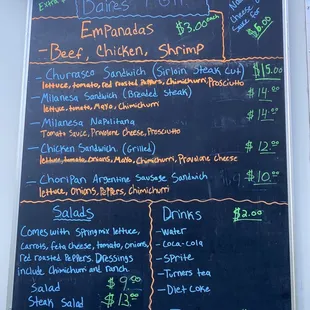 Extra
Empanadas
$3.00 each
- Beef, Chicken, Shrimp
Cheese
$6.00
- Churrasco Sandwich (Sirloin Steak Cut) $15.00
lettuce, tomato, red roasted Peppers, Chimichurri, Prosciutto
- Milanesa Sandwich (Breaded Steak) $14.00
lettuce, tomato, Mayo, Chimichurri
- Milanesa Napolitana $14.00
Tomato Sauce, Provolone Cheese, Prosciutto
- Chicken Sandwich (Grilled) $12.00
lettuce, tomato, onions, Mayo, Chimichurri, Provolone Cheese
- Choripan Argentine Sausage Sandwich $10.00
lettuce, Onions, Peppers, Chimichurri
Salads
Comes with Spring mix lettuce,
Carrots, feta cheese, tomato, onions,
red roasted Peppers. Dressings
include Chimichurri and ranch
Salad $9.50
Steak Salad $13.00
Drinks $2.00
-Water
-Coca-cola
-Sprite
-Turners tea
-Diet Coke